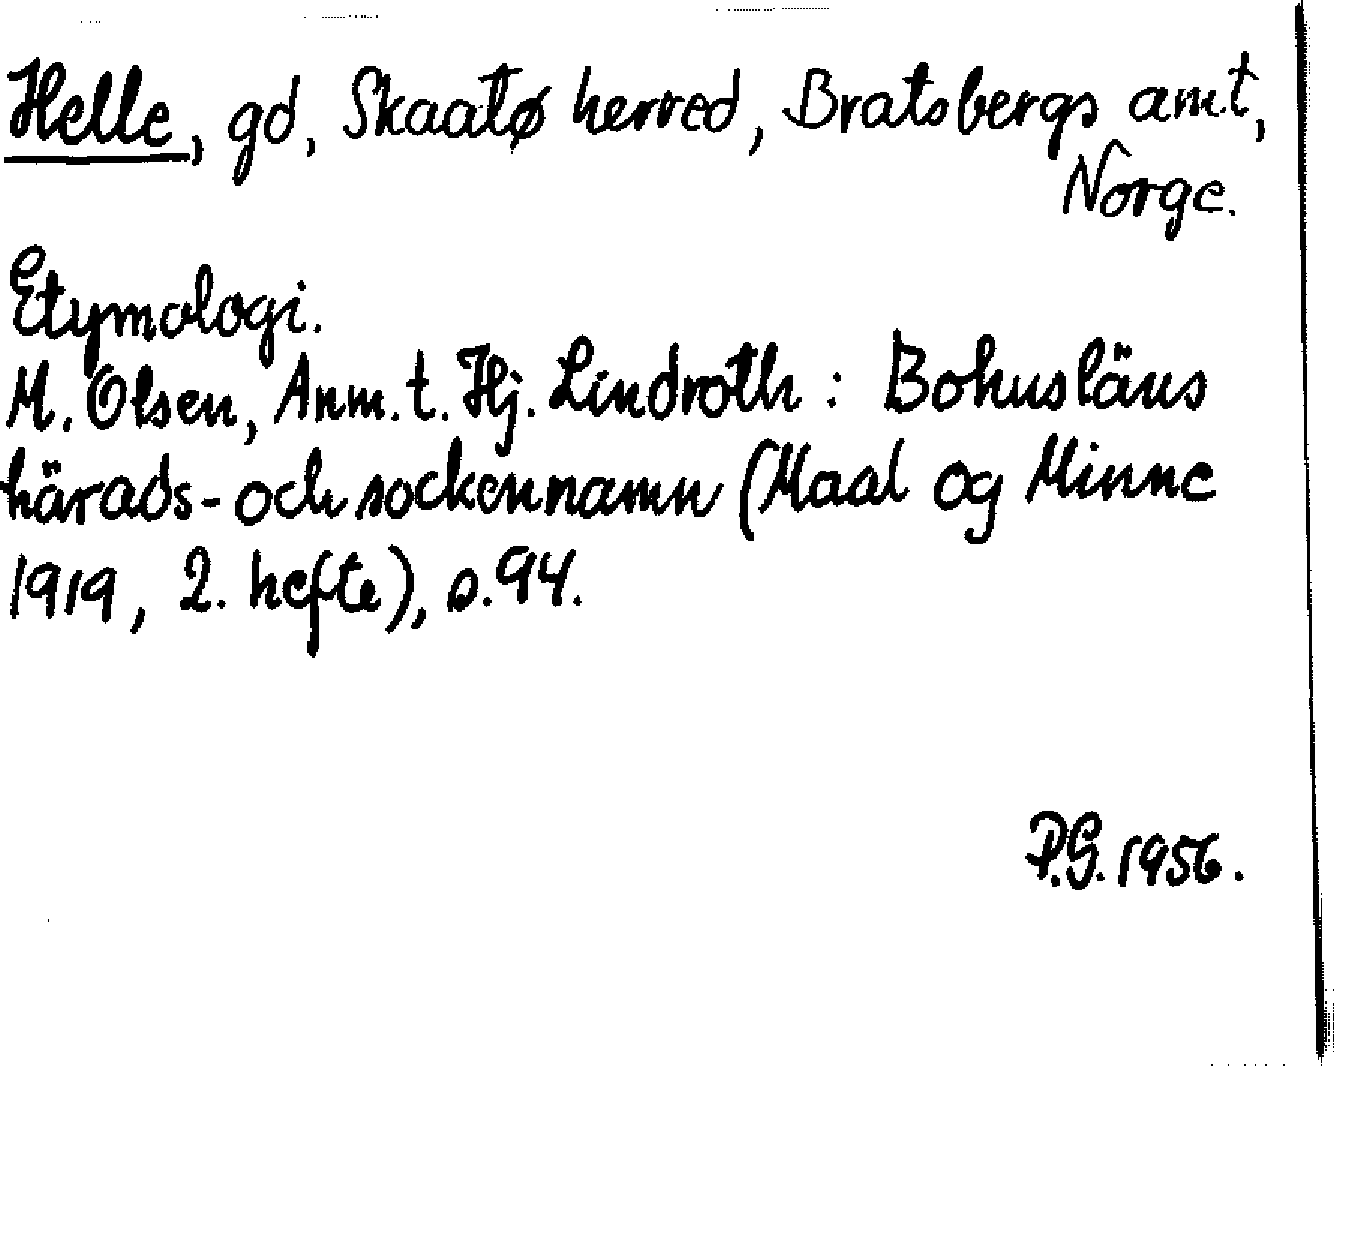 Helle, gd, Skaatø herred, Bratsbergs amt,
Norge.
Etymologi.
M. Olsen, Anm. t. Hj. Lindroth: Bohusläns
härads- och sockennamn (Maal og Minne
1919, 2. hefte), s. 94.
P.G. 1956.